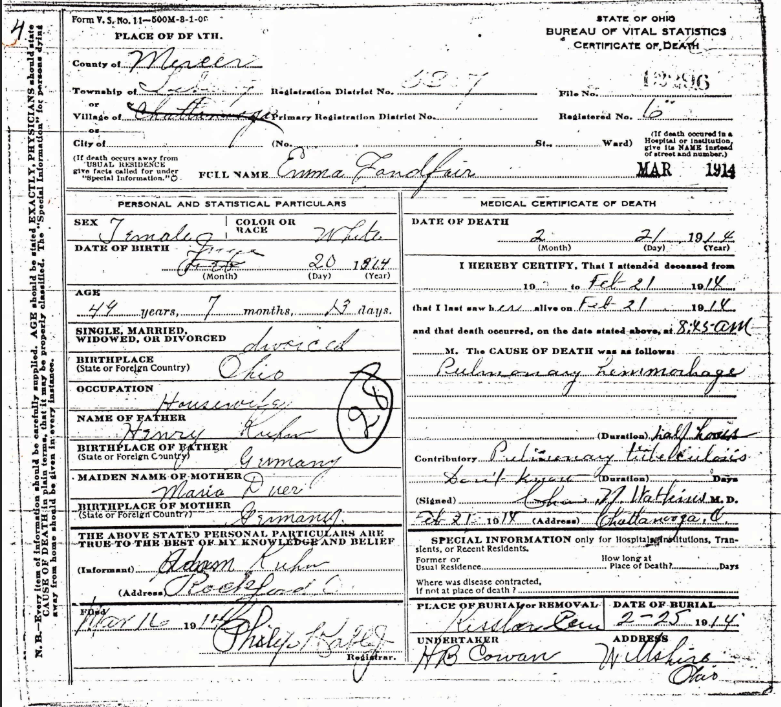 4
Form V. S. No. 11—500M-8-1-0
PLACE OF DEATH.
STATE OF OHIO
BUREAU OF VITAL STATISTICS
CERTIFICATE OF DEATH
County of Mercer
Township of Registration District No. File No.
or
Village of Chattanooga Primary Registration District No. Registered No. 6
or
City of (No. St., Ward)
(If death occured in a Hospital or Institution, give its NAME instead of street and number.)
(If death occurs away from USUAL RESIDENCE give facts called for under "Special Information.")
FULL NAME Emma Fandfair
MAR 1914
PERSONAL AND STATISTICAL PARTICULARS
SEX Female
COLOR OR RACE White
DATE OF BIRTH June Feb 20
(Month) (Day) (Year)
AGE
49 years, 7 months, 13 days.
SINGLE, MARRIED, WIDOWED, OR DIVORCED divorced
BIRTHPLACE
(State or Foreign Country) Ohio
OCCUPATION
Housewife
NAME OF FATHER
Henry Kuhn
BIRTHPLACE OF FATHER
(State or Foreign Country) Germany
MAIDEN NAME OF MOTHER
Maria
BIRTHPLACE OF MOTHER
(State or Foreign Country) Germany.
28
THE ABOVE STATED PERSONAL PARTICULARS ARE
TRUE TO THE BEST OF MY KNOWLEDGE AND BELIEF
(Informant) Adam Kuhn
(Address) Rockford O
Filed
Mar 16 1914 Philip
Registrar.
MEDICAL CERTIFICATE OF DEATH
DATE OF DEATH
2 21 1914
(Month) (Day) (Year)
I HEREBY CERTIFY, That I attended deceased from
19 to Feb 21 1914
that I last saw her alive on Feb 21 1914
and that death occurred, on the date stated above, at 8:45 am
M. The CAUSE OF DEATH was as follows:
Pulmonary hemmorhage
(Duration) half hour
Contributory Pulmonary tuberculosis
Don't know (Duration) Days
(Signed) N. Watkins M. D.
Feb 21 1914 (Address) Chattanooga, O.
SPECIAL INFORMATION only for Hospitals, Institutions, Transients, or Recent Residents.
Former or Usual Residence
How long at Place of Death? Days
Where was disease contracted,
If not at place of death?
PLACE OF BURIAL or REMOVAL Kessler Cem
DATE OF BURIAL 2-25 1914
UNDERTAKER
HB Cowan
ADDRESS
Willshire
Ohio
N. B.—Every item of information should be carefully supplied. AGE should be stated EXACTLY. PHYSICIANS should state
CAUSE OF DEATH in plain terms, that it may be properly classified. The "Special Information" for persons dying
away from home should be given in every instance.